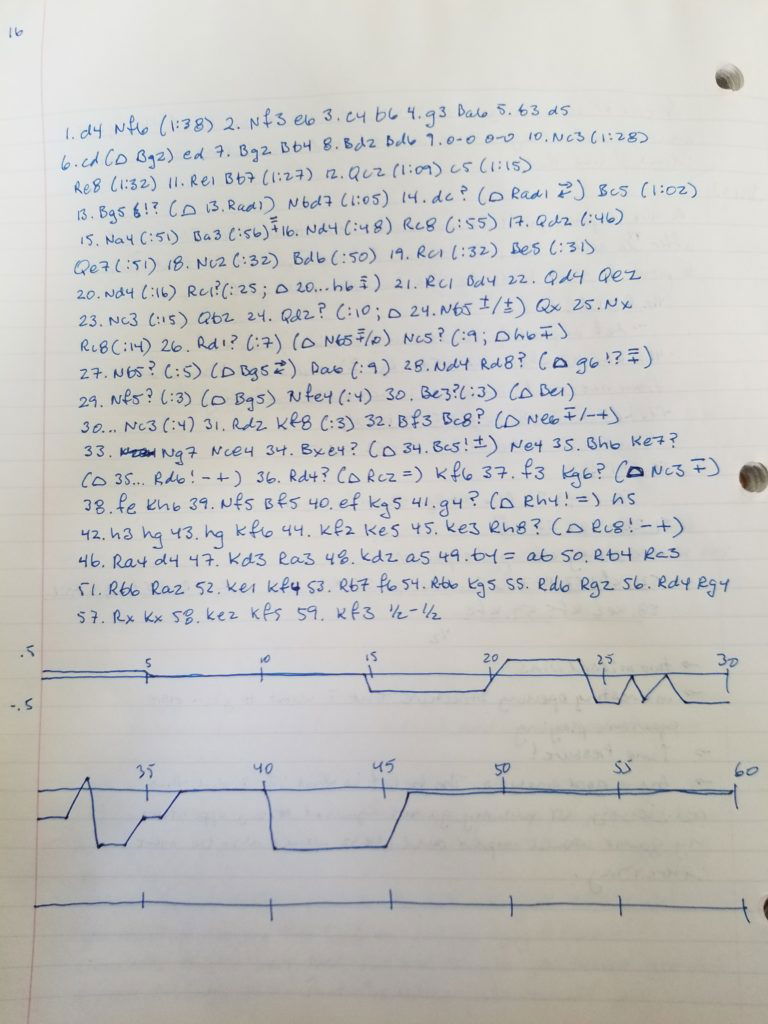 16
1. d4 Nf6 (1:38) 2. Nf3 e6 3. c4 b6 4. g3 Ba6 5. b3 d5
6. cd (△ Bg2) ed 7. Bg2 Bb4 8. Bd2 Bd6 9. 0-0 0-0 10. Nc3 (1:28)
Re8 (1:32) 11. Re1 Bb7 (1:27) 12. Qc2 (1:09) c5 (1:15)
13. Bg5 !? (△ 13. Rad1) Nbd7 (1:05) 14. dc? (△ Rad1 ⇄) Bc5 (1:02)
15. Na4 (:51) Ba3 (:56) ⩱ 16. Nd4 (:48) Rc8 (:55) 17. Qd2 (:46)
Qe7 (:51) 18. Nc2 (:32) Bd6 (:50) 19. Rc1 (:32) Be5 (:31)
20. Nd4 (:16) Rc1? (:25; △ 20...h6 ⩱) 21. Rc1 Bd4 22. Qd4 Qe2
23. Nc3 (:15) Qb2 24. Qd2? (:10; △ 24. Nb5 ±/±) Qx 25. Nx
Rc8 (:14) 26. Rd1? (:7) (△ Nb5 ⩱/0) Nc5? (:9; △ h6 ∓)
27. Nb5? (:5) (△ Bg5 ⇄) Ba6 (:9) 28. Nd4 Rd8? (△ g6 !? ⩱)
29. Nf5? (:3) (△ Bg5) Nfe4 (:4) 30. Be3? (:3) (△ Be1)
30... Nc3 (:4) 31. Rd2 Kf8 (:3) 32. Bf3 Bc8? (△ Ne6 ∓/-+)
33. Ng7 Nce4 34. Bxe4? (△ 34. Bc5! ±) Ne4 35. Bh6 Ke7?
(△ 35... Rd6! -+) 36. Rd4? (△ Rc2 =) Kf6 37. f3 Kg6? (△ Nc3 ∓)
38. fe Kh6 39. Nf5 Bf5 40. ef Kg5 41. g4? (△ Rh4! =) h5
42. h3 hg 43. hg Kf6 44. Kf2 Ke5 45. Ke3 Rh8? (△ Rc8! -+)
46. Ra4 d4 47. Kd3 Ra3 48. Kd2 a5 49. b4 = ab 50. Rb4 Ra3
51. Rb6 Ra2 52. Ke1 Kf4 53. Rb7 f6 54. Rb6 Kg5 55. Rd6 Rg2 56. Rd4 Rg4
57. Rx Kx 58. Ke2 Kf5 59. Kf3 ½-½
.5 5 10 15 20 25 30
-.5
35 40 45 50 55 60